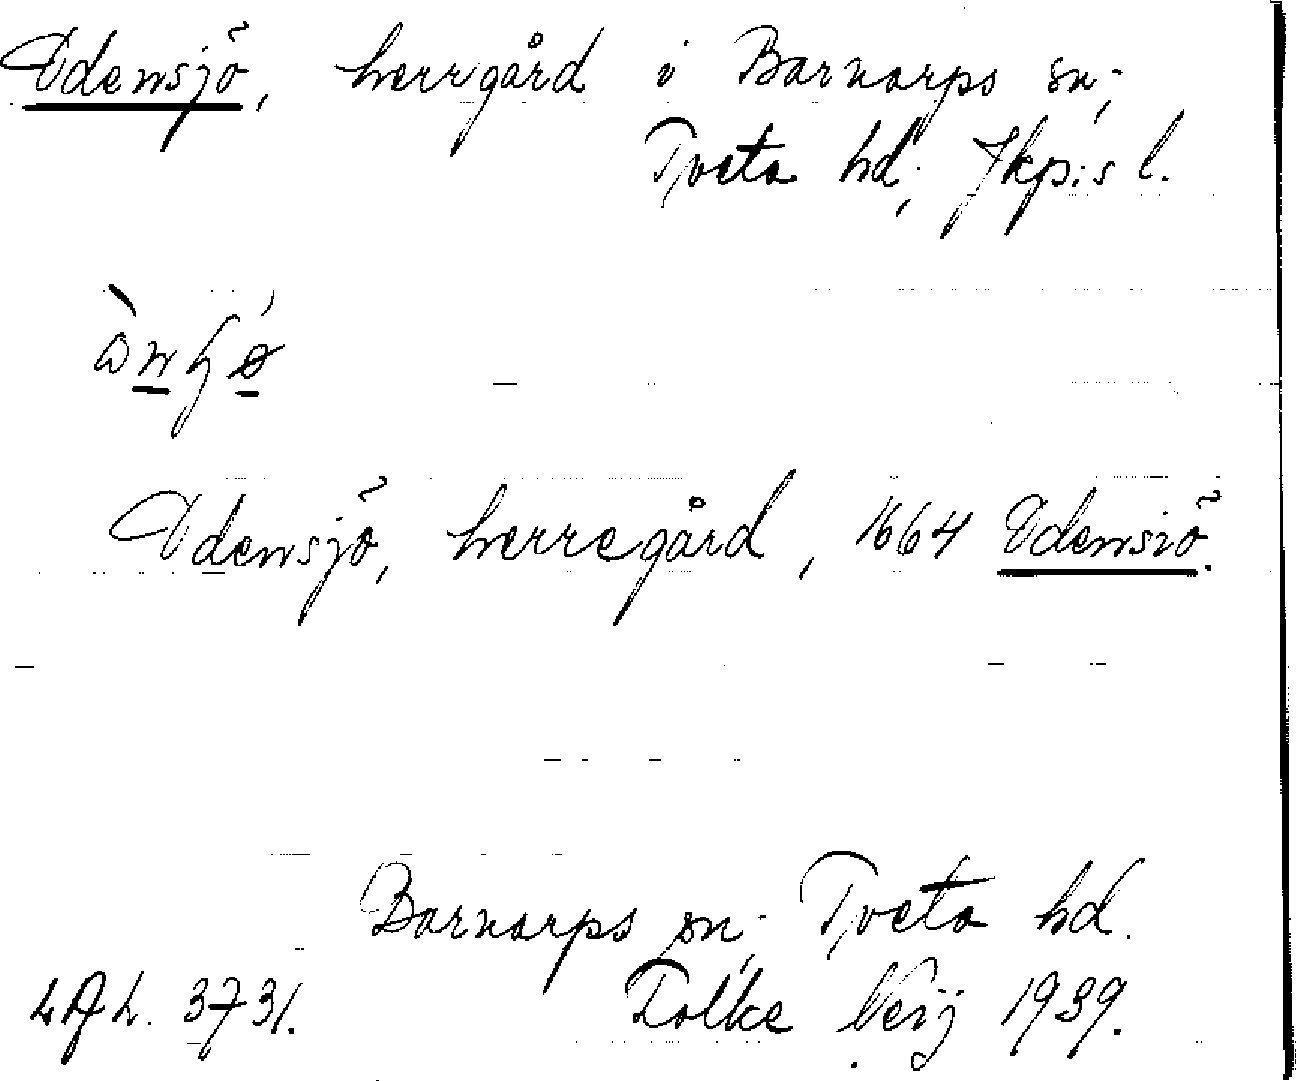 Odensjö, herrgård i Barnarps sn;
Tveta hd; Jkp:s l.
Odensjö, herregård, 1664 Odensiö.
Barnarps sn; Tveta hd.
3731. Folke Neij 1939.